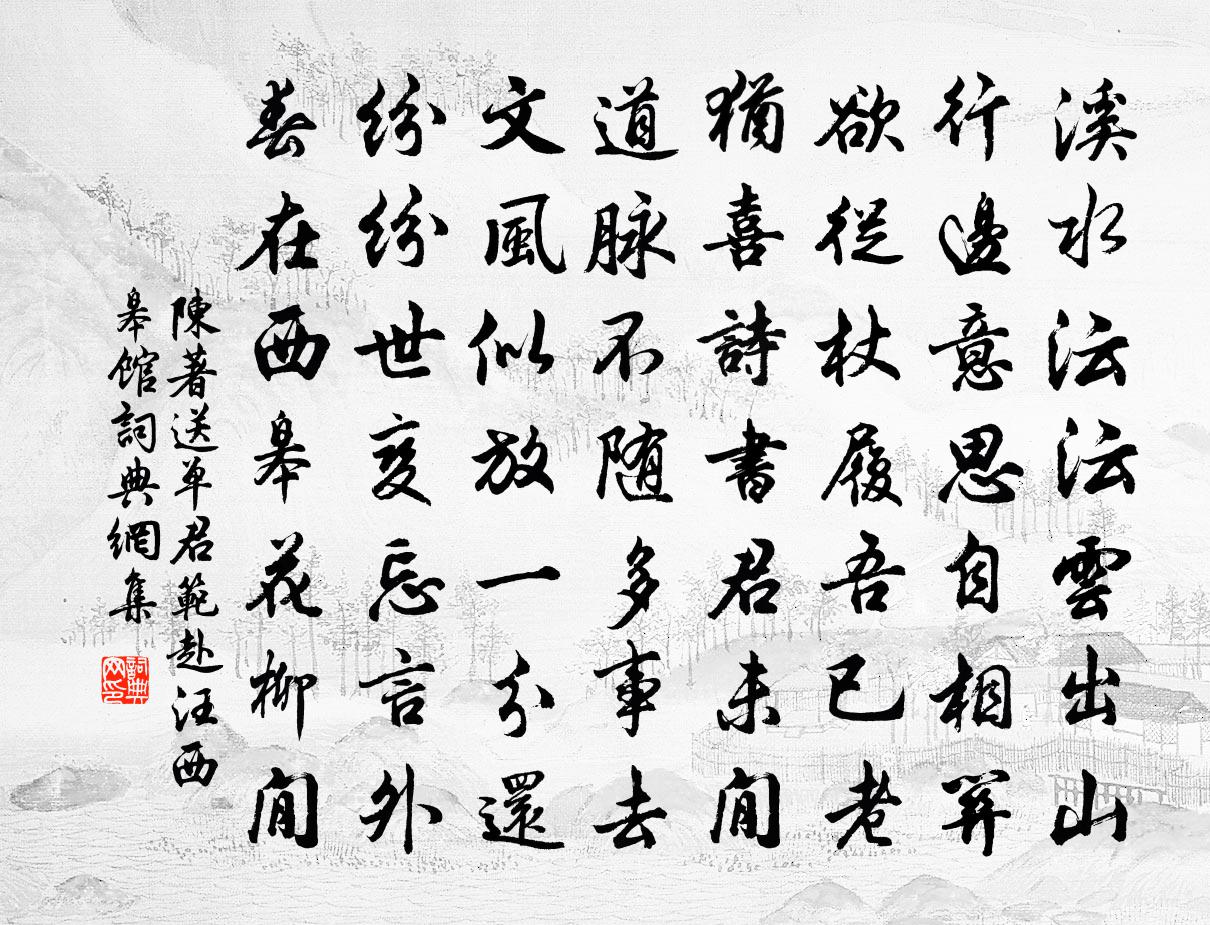 溪水沄沄雲出山
行邊意思自相關
欲從杖履吾已老
猶喜詩書君未閒
道脉不随多事去
文風似放一分還
紛紛世變忘言外
春在西皋花柳間
陳著送单君範赴汪西
皋館詞典網集
詞典网印